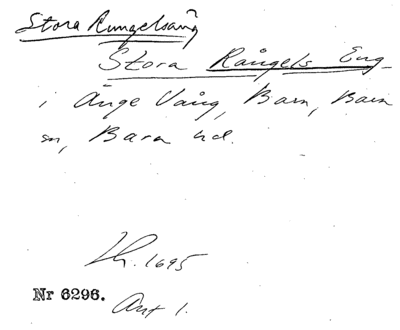 Stora Rungelsäng
Stora Rångels Eng
i Änge Vång, Bara, Bara
sn, Bara hd.
Lh. 1695
Nr 6296.
Ant 1.